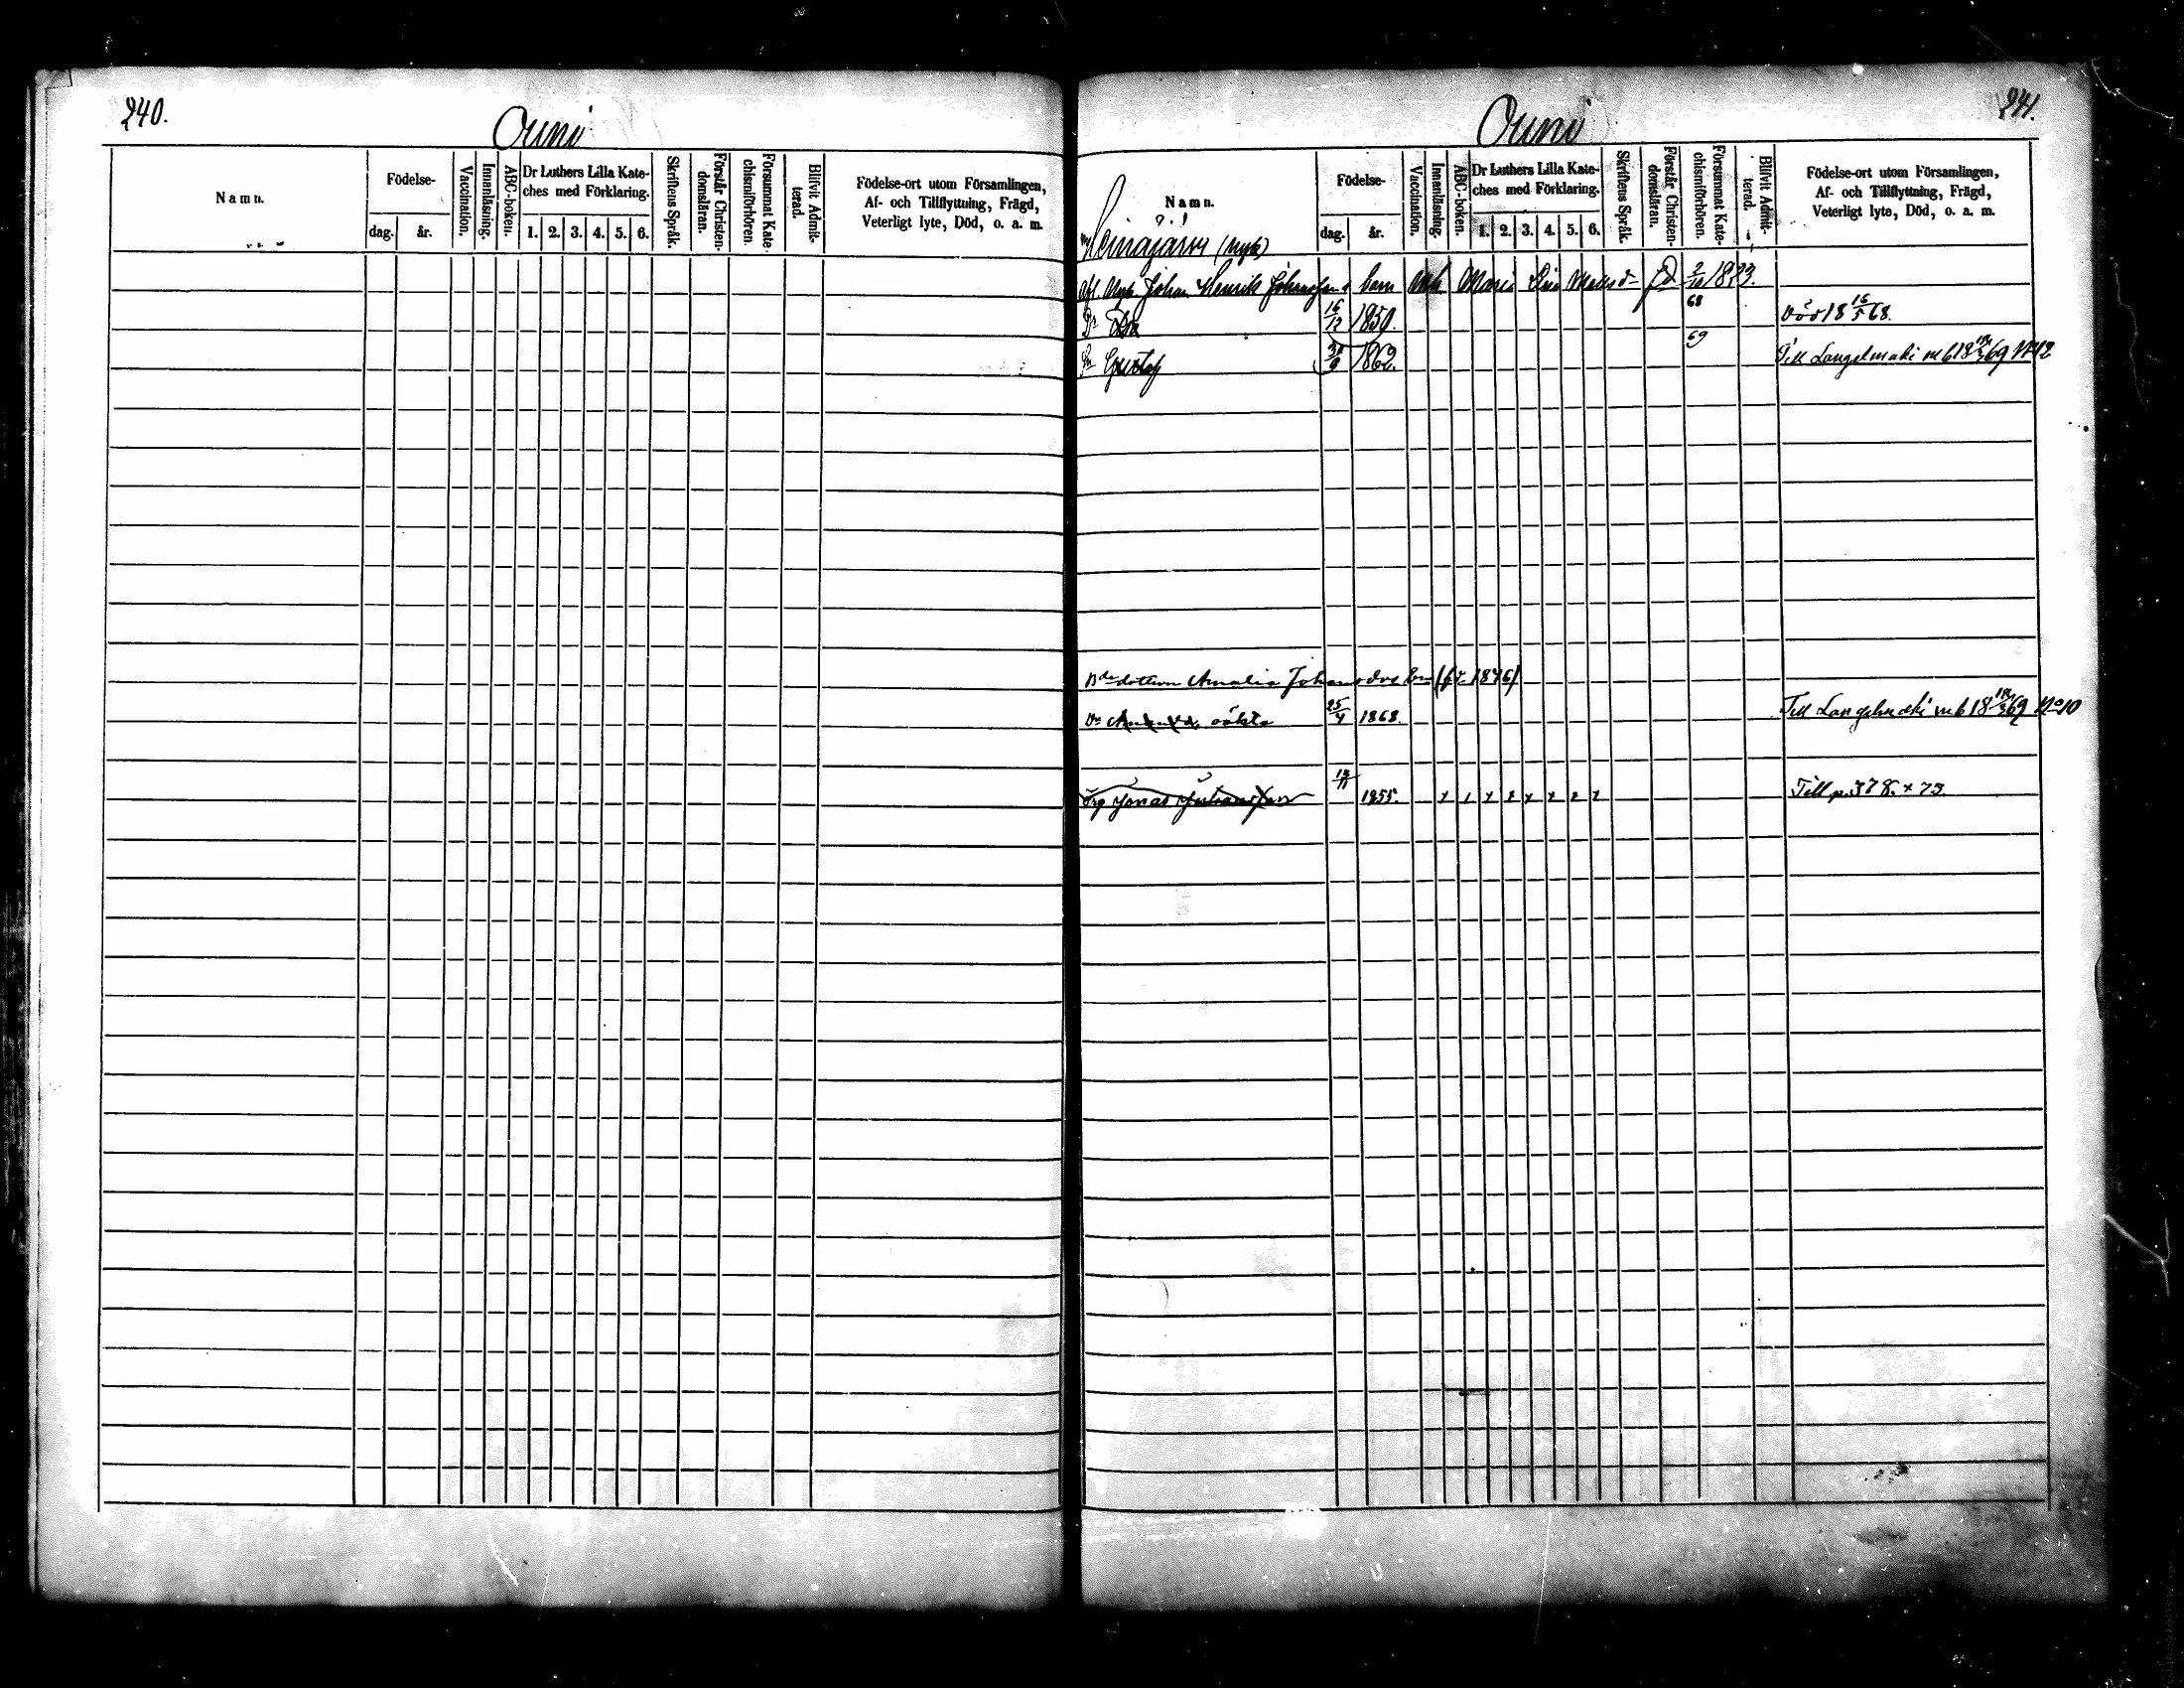 240.
Ouni
Namn.
Födelse-
dag. år.
Vaccination.
Innanläsning.
ABC-boken.
Dr Luthers Lilla Kate-
ches med Förklaring.
1. 2. 3. 4. 5. 6.
Skriftens Språk.
Förstår Christen-
domsläran.
Försummat Kate-
chismiförhören.
Blifvit Admit-
terad.
Födelse-ort utom Församlingen,
Af- och Tillflyttning, Frägd,
Veterligt lyte, Död, o. a. m.
241.
Ouni
Namn.
Födelse-
dag. år.
Vaccination.
Innanläsning.
ABC-boken.
Dr Luthers Lilla Kate-
ches med Förklaring.
1. 2. 3. 4. 5. 6.
Skriftens Språk.
Förstår Christen-
domsläran.
Försummat Kate-
chismiförhören.
Blifvit Admit-
terad.
Födelse-ort utom Församlingen,
Af- och Tillflyttning, Frägd,
Veterligt lyte, Död, o. a. m.
Johan Henrik Johansson barn Enk Maria 2/10 1823.
Dr 16/12 1850. 68 död 18 16/5 68.
Sn Gustaf 30/9 1862. 69 Till Längelmäki mb 18 69 No 12
dottern Amalia Johansdotter (f. 1846)
Dr oäkta 25/4 1868. Till Längelmäki mb 18 69 No 10
Drg Jonas 1855. x 1 x x x x x x Till p. 378. x 75.